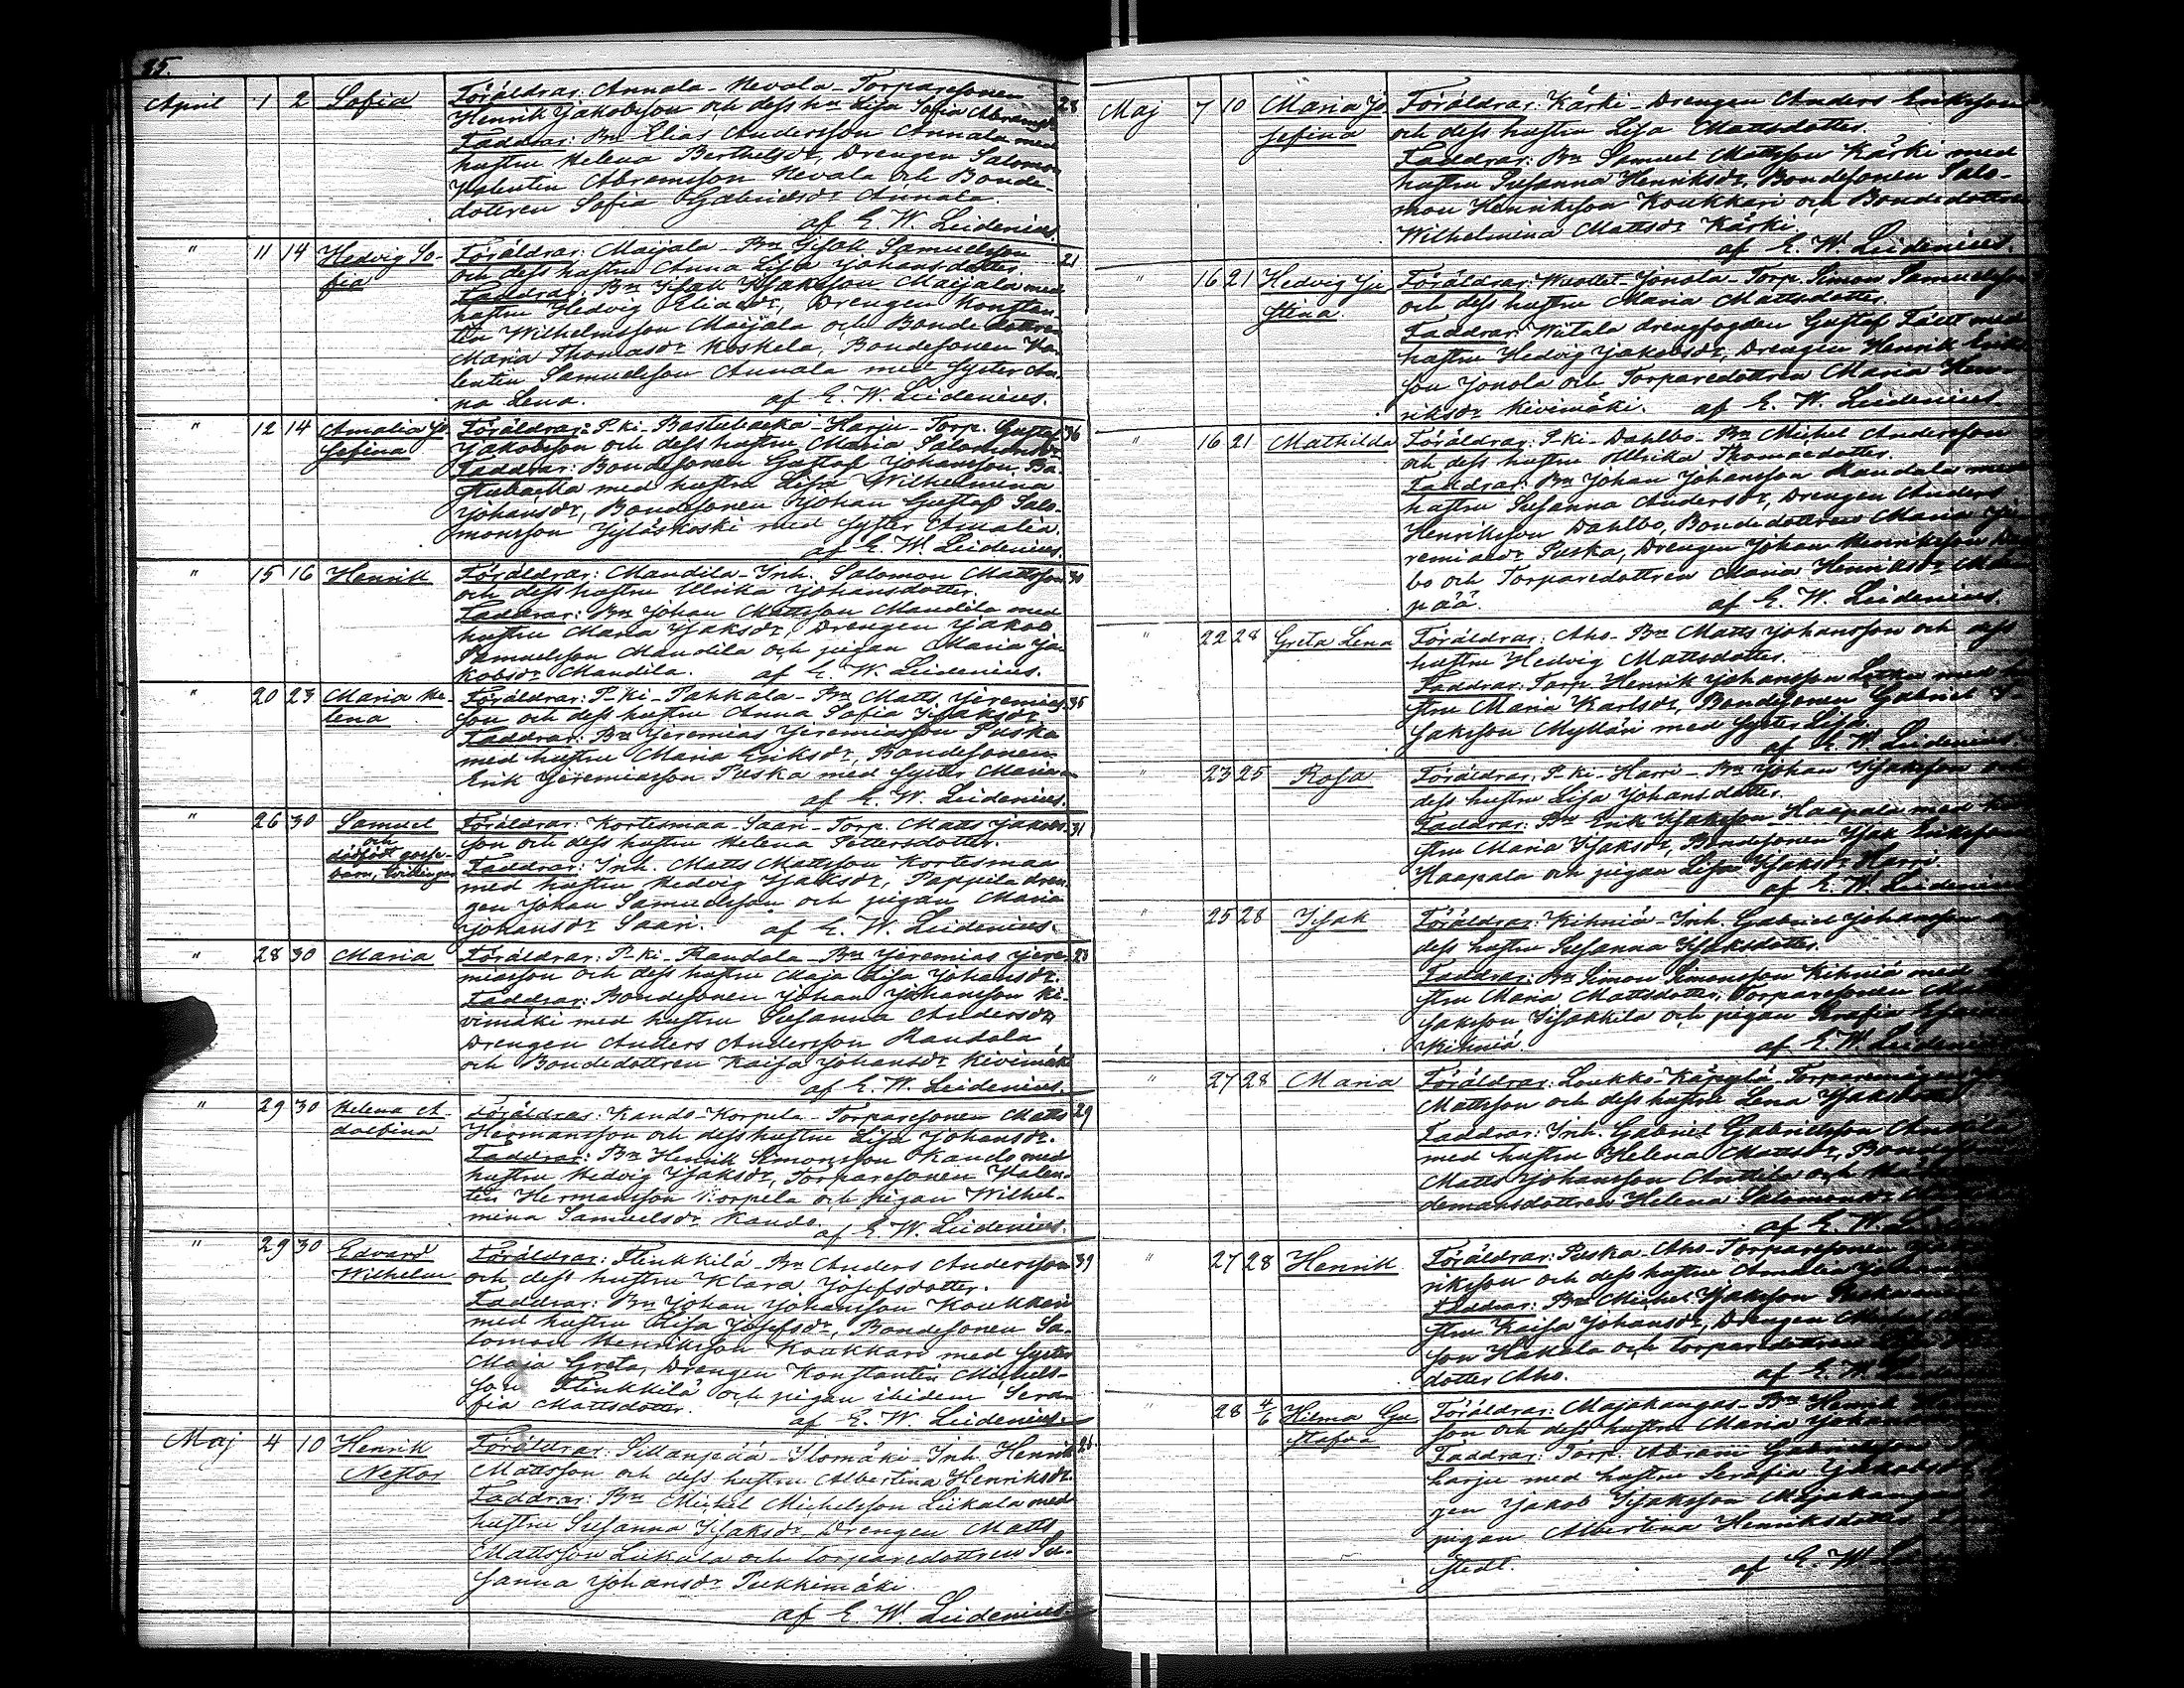 25.
April 1 2 Sofia Föräldrar: Annala-Nevala-Torparesonen 23
Henrik Jakobsson och dess hu Lisa Sofia Abramsdr
Faddrar: Bn Elias Andersson Annala med
hustru Helena Berthelsdr, Drengen Salomon
Valentin Abramsson Nevala och Bonde-
dottren Sofia Gabrielsdr Annala.
af E. W. Leidenius.
" 11 14 Hedvig So- Föräldrar: Maijala-Bn Isak Samuelsson 21
fia och dess hustru Anna Lisa Johansdotter.
Faddrar: Bn Isak Isaksson Maijala med
hustru Hedvig Eliasdr, Drengen Konstan-
tin Wilhelmsson Maijala och Bondedottren
Maria Thomasdr Koskela, Bondesonen Va-
lentin Samuelsson Annala med syster An-
na Lena. af E. W. Leidenius.
" 12 14 Amalia Jo- Föräldrar: P-ki-Bastubacka-Harju-Torp. Gustaf 36
sefina Jakobsson och dess hustru Maria Salomonsdr
Faddrar: Bondesonen Gustaf Johansson Ba-
stubacka med hustru Lisa Wilhelmina
Johansdr, Bondesonen Johan Gustaf Salo-
monsson Jyläskoski med syster Amalia.
af E. W. Leidenius.
" 15 16 Henrik Föräldrar: Mandila-Inh. Salomon Mattsson 30
och dess hustru Ulrika Johansdotter.
Faddrar: Bn Johan Mattsson Mandila med
hustru Maria Isaksdr, Drengen Jakob
Samuelsson Mandila och pigan Maria Ja-
kobsdr Mandila. af E. W. Leidenius.
" 20 23 Maria He- Föräldrar: P-ki-Pahkala-Bn Matts Jeremias- 35
lena son och dess hustru Anna Sofia Isaksdr
Faddrar: Bn Jeremias Jeremiasson Puska
med hustru Maria Eriksdr, Bondesonen
Erik Jeremiasson Puska med syster Maria
af E. W. Leidenius.
" 26 30 Samuel Föräldrar: Kortesmaa-Saari-Torp. Matts Jakobs- 31
och son och dess hustru Helena Pettersdotter.
dödfödt gosse- Faddrar: Inh. Matts Mattsson Kortesmaa
barn, tvillingar med hustru Hedvig Isaksdr, Pappila dren-
gen Johan Samuelsson och pigan Maria
Johansdr Saari. af E. W. Leidenius.
" 28 30 Maria Föräldrar: P-ki-Randala-Bn Jeremias Jere- 23
miasson och dess hustru Maja Lisa Johansdr.
Faddrar: Bondesonen Johan Johansson Ki-
vimäki med hustru Susanna Andersdr
Drengen Anders Andersson Randala
och Bondedottren Kaisa Johansdr Kivimäki
af E. W. Leidenius.
" 29 30 Helena A- Föräldrar: Kando-Korpela-Torparesonen Matts 29
dolfina Hermansson och dess hustru Lisa Johansdr.
Faddrar: Bn Henrik Simonsson Kando med
hustru Hedvig Isaksdr, Torparesonen Valen-
tin Hermansson Korpela och pigan Wilhel-
mina Samuelsdr Kando.
af E. W. Leidenius.
" 29 30 Edvard Föräldrar: Flinkkilä-Bn Anders Andersson 39
Wilhelm och dess hustru Klara Josefsdotter.
Faddrar: Bn Johan Johansson Koukkari
med hustru Lisa Josefsdr, Bondesonen Sa-
lomon Henriksson Koukkari med syster
Maja Greta, Drengen Konstantin Michels-
son Flinkkilä och pigan ibidem Sera-
fia Mattsdotter.
af E. W. Leidenius.
Maj 4 10 Henrik Föräldrar: Sillanpää-Ilomäki-Inh. Henrik 26
Nestor Mattsson och dess hustru Albertina Henriksdr.
Faddrar: Bn Michel Michelsson Liikala med
hustru Susanna Isaksdr, Drengen Matts
Mattsson Liikala och torparedottren Su-
sanna Johansdr Pukkimäki.
af E. W. Leidenius.
Maj 7 10 Maria Jo- Föräldrar: Kärki-Drengen Anders Eriksson
sefina och dess hustru Lisa Mattsdotter.
Faddrar: Bn Samuel Mattsson Kärki med
hustru Susanna Henriksdr, Bondesonen Salo-
mon Henriksson Koukkari och Bondedottren
Wilhelmina Mattsdr Kärki.
af E. W. Leidenius
" 16 21 Hedvig Ju- Föräldrar: Jonola-Torp. Simon Samuelsson
stina. och dess hustru Maria Mattsdotter.
Faddrar: Wiitala drengfogden Gustaf med
hustru Hedvig Jakobsdr, Drengen Henrik Eriks-
son Jonola och Torparedottren Maria Hen-
riksdr Kivimäki. af E. W. Leidenius.
" 16 21 Mathilda Föräldrar: P-ki-Dahlbo-Bn Michel Andersson
och dess hustru Ulrika Thomasdotter.
Faddrar: Bn Johan Johansson Randala med
hustru Susanna Andersdr, Drengen Anders
Henriksson Dahlbo, Bondedottren Maria Je-
remiasdr Puska, Drengen Johan Henriksson Dahl-
bo och Torparedottren Maria Henriksdr
pää. af E. W. Leidenius.
" 22 28 Greta Lena Föräldrar: Aho-Bn Matts Johansson och dess
hustru Hedvig Mattsdotter.
Faddrar: Torp. Henrik Johansson med hu-
stru Maria Karlsdr, Bondesonen Gabriel I-
saksson Mylläri med syster Lisa.
af E. W. Leidenius.
" 23 25 Rosa Föräldrar: P-ki-Harri-Bn Johan Isaksson och
dess hustru Lisa Johansdotter.
Faddrar: Bn Erik Isaksson Haapala med hu-
stru Maria Isaksdr, Bondesonen Isak Eriksson
Haapala och pigan Lisa Isaksdr Harri.
af E. W. Leidenius
" 25 28 Isak Föräldrar: Kihniä-Inh. Gabriel Johansson
dess hustru Susanna Isaksdotter.
Faddrar: Bn Simon Simonsson Kihniä med
stru Maria Mattsdotter, Torparesonen
saksson Isakkila och pigan
Kihniä. af E. W. Leidenius
" 27 28 Maria Föräldrar: Loukko-Käpylä-
Mattsson och dess hustru Lena Isaksdotter
Faddrar: Inh. Gabriel Gabrielsson
med hustru Helena Mattsdr,
Matts Johansson Anttila och
demansdottren Helena Salomonsdr
af E. W.
" 27 28 Henrik Föräldrar: Puska-Aho-Torparesonen
riksson och dess hustru Amalia
Faddrar: Bn Michel Isaksson
stru Kaisa Johansdr, Drengen
son Hakala och torparedottren
dotter Aho. af E. W.
" 28 4/6 Hilma Gu- Föräldrar: Majakangas-Bn Henrik
stafva son och dess hustru Maria
Faddrar: Torp. Abram Gabrielsson
harju med hustru Serafia Jakobsdr
gen Jakob Isaksson Majakangas
pigan Albertina Henriksdotter
stedt. af E. W.